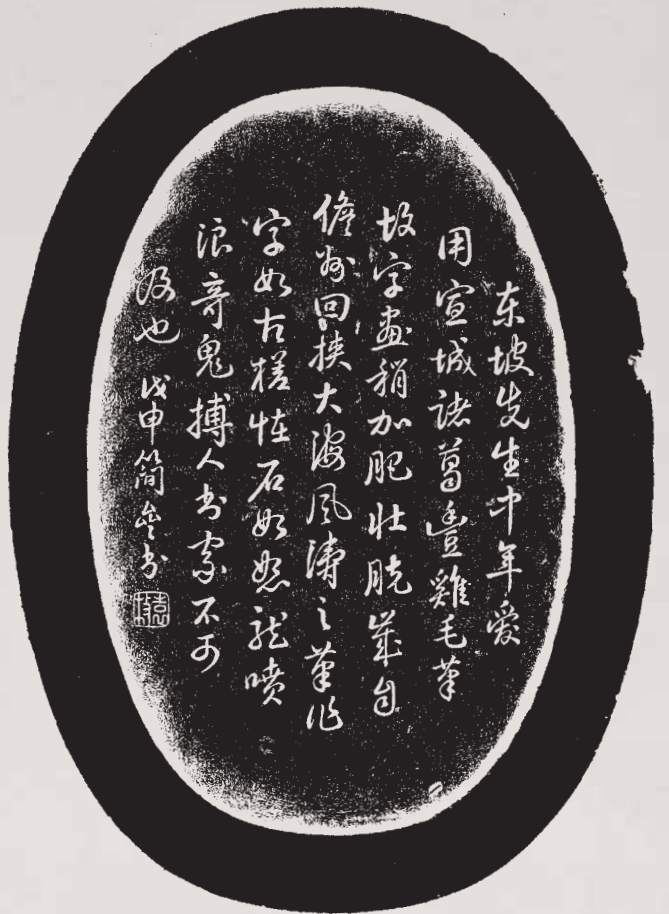 東坡先生中年愛
用宣城諸葛豊雞毛筆
故字畫稍加肥壯晚歲自
儋州回挾大海風濤之筆作
字如古槎怪石如怒龍噴
浪奇鬼搏人書家不可
及也 戊申簡書